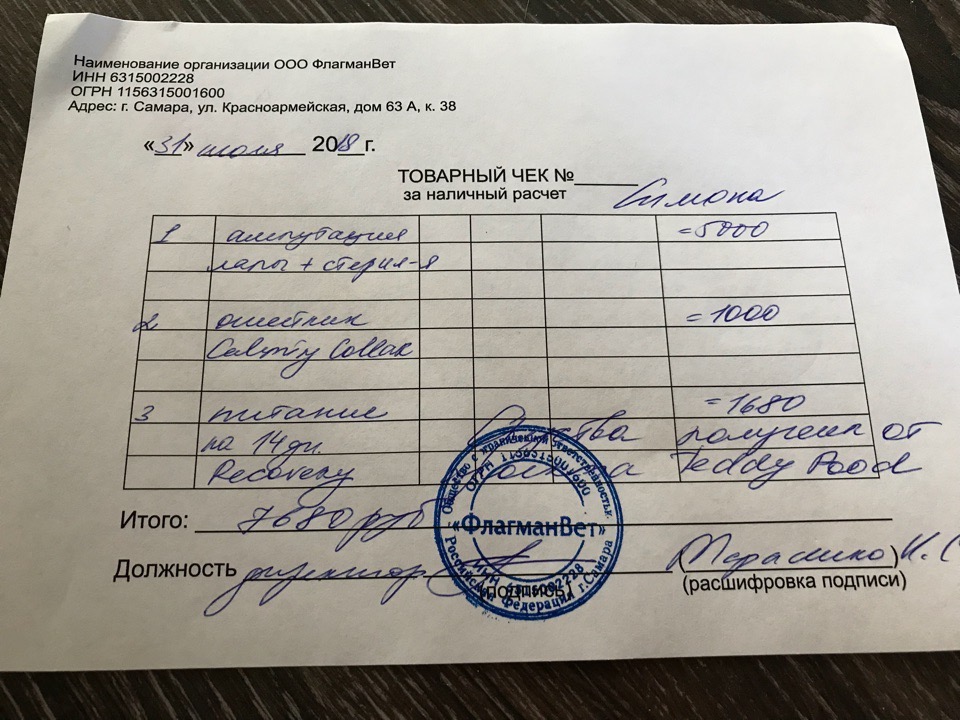 Наименование организации ООО ФлагманВет
ИНН 6315002228
ОГРН 1156315001600
Адрес: г. Самара, ул. Красноармейская, дом 63 А, к. 38
«31» июля 2018 г.
ТОВАРНЫЙ ЧЕК №
за наличный расчет
Симона
1 ампутация =5000
лапы + стерил-я
2 ошейник =1000
Collar
3 питание =1680
на 14 дн. Средства получены от
Recovery Teddy Food
Итого: 7680 руб
Должность директор
(подпись)
(расшифровка подписи)
Общество с ограниченной ответственностью
ОГРН 1156315001600
«ФлагманВет»
ИНН 6315002228
Российская Федерация г. Самара